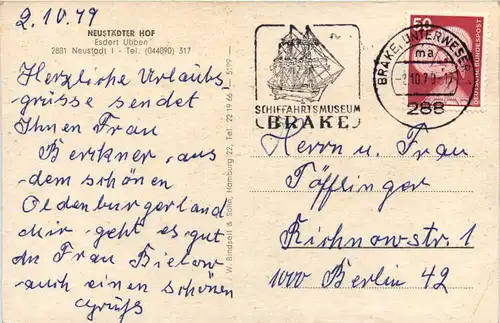 2.10.79
NEUSTÄDTER HOF
Esdert Ubben
2881 Neustadt 1 - Tel. (044090) 317
Herzliche Urlaubs
grüsse sendet
Ihnen Frau
Berkner, aus
dem schönen
Oldenburgerland
mir geht es gut
an Frau Bielow
auch einen schönen
Gruß
W. Bindseil & Sohn, Hamburg 22, Tel. 22 19 66 — 5199 —
SCHIFFAHRTSMUSEUM
BRAKE
BRAKE, UNTERWESER
ma
2.10.79-17
288
50
DEUTSCHE BUNDESPOST
Herrn u. Frau
Töfflinger
Richnowstr. 1
1000 Berlin 42